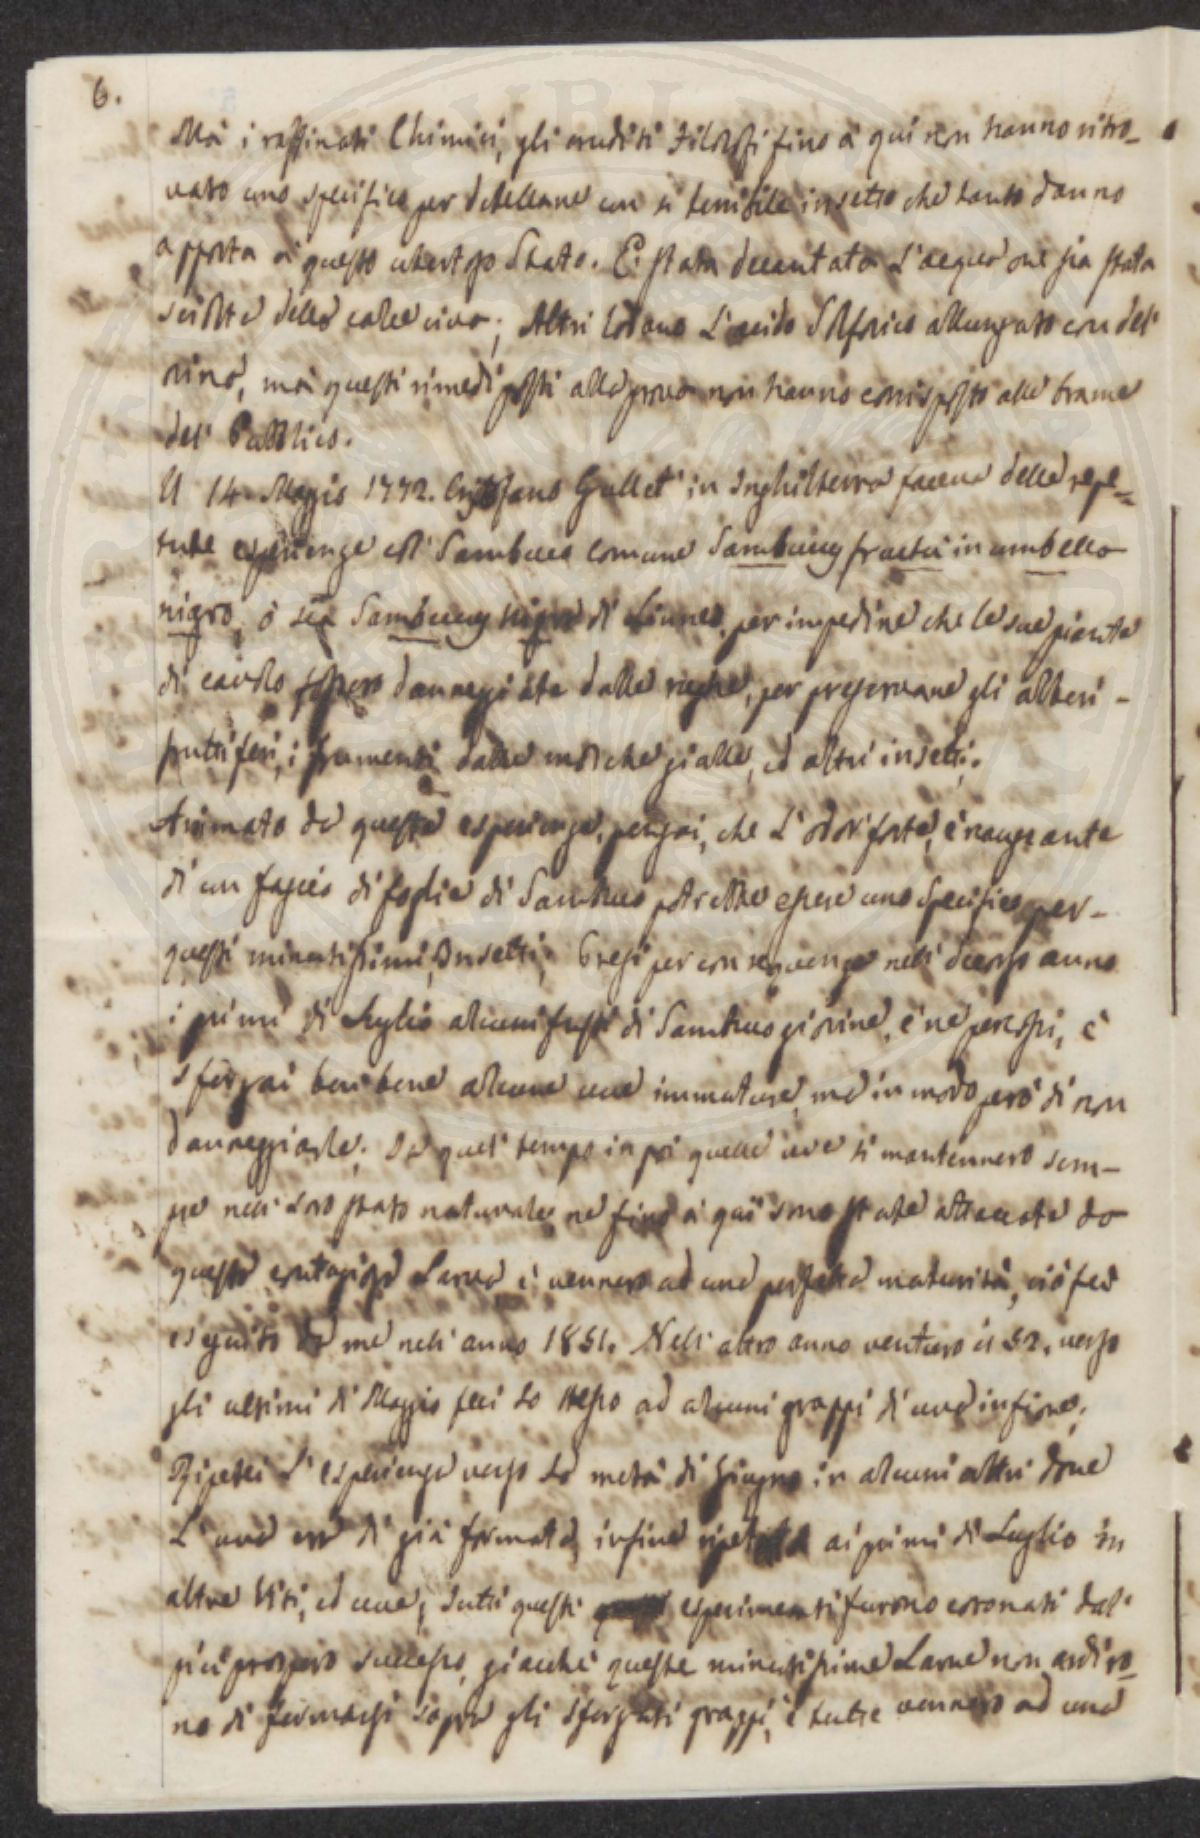 6.
Mà i raffinati Chimici, gli eruditi Filosofi fino à qui non hanno ritro-
vato uno specifico per debellare un sì terribile insetto che tanto danno
apporta à questo ubertoso Stato. È stata decantata L'acqua ove sia stata
sciolta della calce viva; Altri lodano L'acido Solforico allungato con del'
orina, mà questi rimedi posti alla prova non hanno corrisposto alle brame
del' Pubblico.
Il 14. Maggio 1772. Cristofano Gullet' in Inghilterra faceva delle repe=
tute esperienze col' Sambuco comune Sambucus fructu in umbella
nigro, ò sia Sambucus nigra di Linneo, per impedire che le sue piante
di cavolo fossero danneggiate dalle rughe, per preservare gli alberi -
fruttiferi, i frumenti dalle mosche gialle, ed altri insetti.
Animato da questa esperienza, pensai, che L'odor' forte, è nauseante
di un fascio di foglie di Sambuco potrebbe essere uno specifico per-
questi minutissimi Insetti; Presi per conseguenza nell' decorso anno
i primi di Luglio alcuni fusti di Sambuco giovine, è ne percossi, è
sferzai ben bene alcune uve immature, ma in modo però di non
danneggiarle. Da quel' tempo in poi quelle uve si mantennero sem-
pre nell' loro stato naturale, ne fino à quì sono state attaccate da
questa contagiosa Larva è vennero ad una perfetta maturità, ciò fu
eseguito da me nell' anno 1851. Nell' altro anno venturo il 52. verso
gli ultimi di Maggio feci lo stesso ad alcuni grappi di uva in fiore;
Ripetei L'esperienza verso la metà di Giugno in alcuni altri dove
L'uva era di già formata, infine ripetuta ai primi di Luglio in
altre Viti, ed uve; tutti questi esperimenti furono coronati dal'
più prospero successo, giacchè queste minutissime Larve non ardiro-
no di fermarsi sopra gli sferzati grappi, è tutte vennero ad una